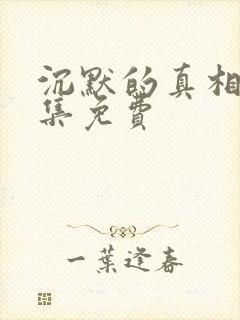 沉默的真相
集免费
一葉逢春